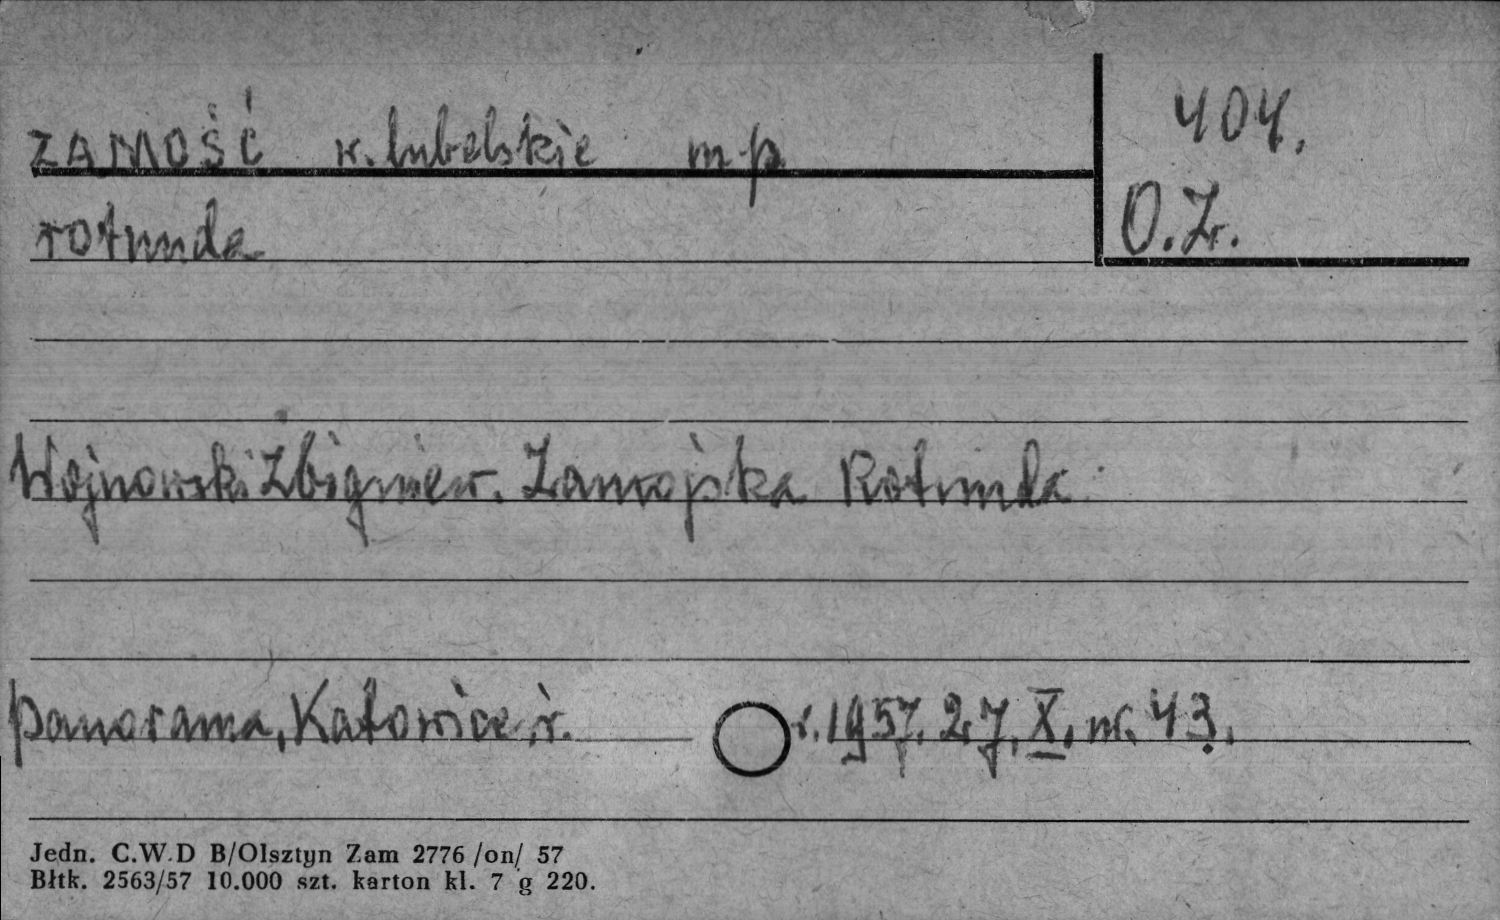 ZAMOŚĆ w. lubelskie mp
404.
O.Z.
rotunda
Wojnowski Zbigniew. Zamojska Rotunda
Panorama, Katowice, r. r. 1957. 27. X. nr. 43.
Jedn. C.W.D B/Olsztyn Zam 2776 /on/ 57
Błtk. 2563/57 10.000 szt. karton kl. 7 g 220.